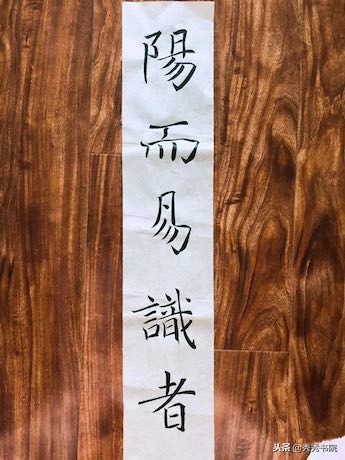 陽而易識者
头条 @秀秀书院